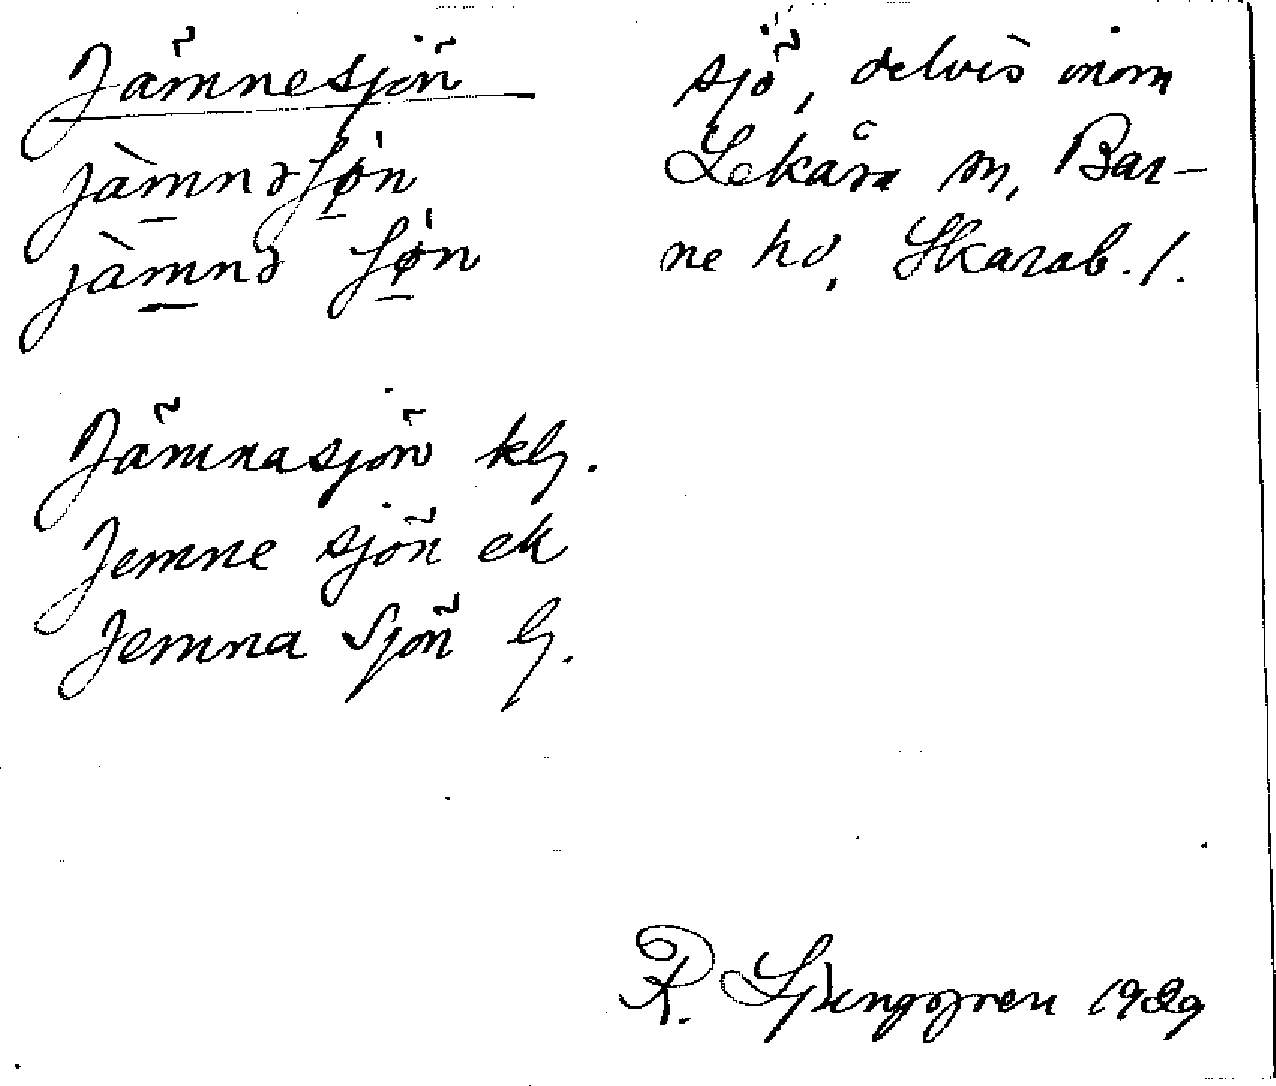 Jämnesjön
jàmnəʃøn
jàmnə ʃøn
Jämnasjön kG.
Jemne sjön ek
Jemna Sjön G.
sjö, delvis inom
Lekåsa sn, Bar-
ne hd, Skarab. l.
R. Ljunggren 1929